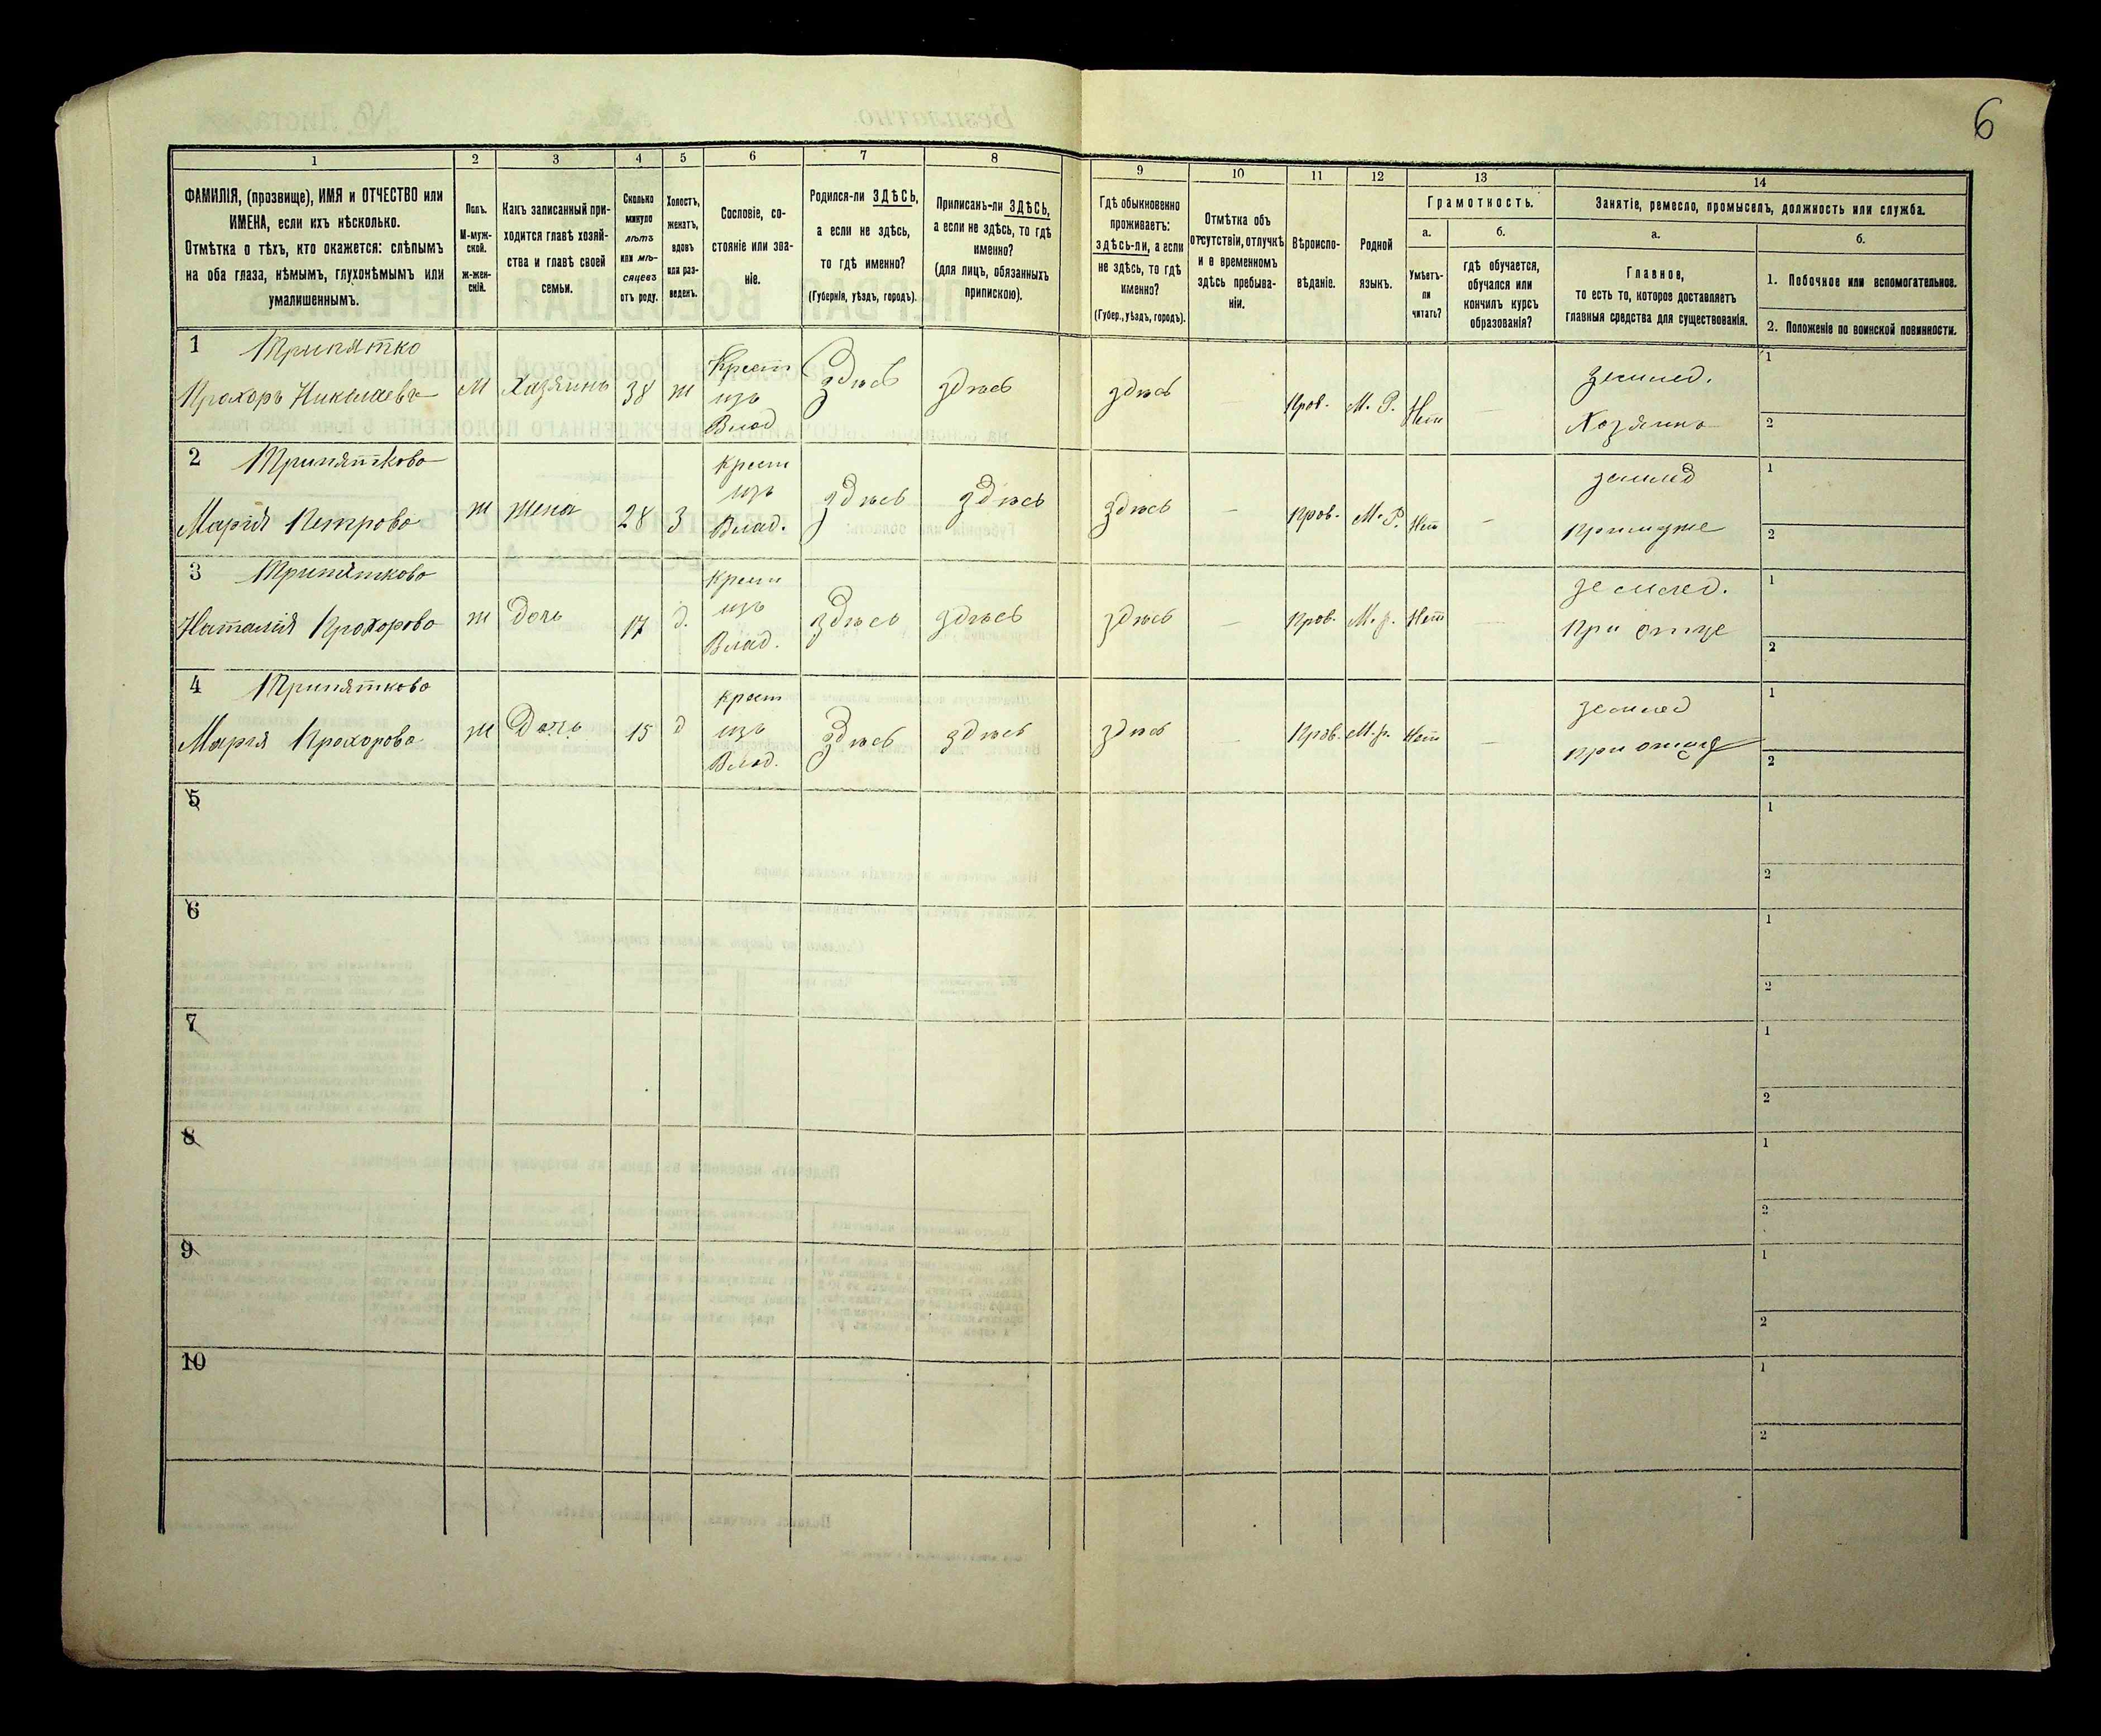 6
1 2 3 4 5 6 7 8 9 10 11 12 13 14
ФАМИЛІЯ, (прозвище), ИМЯ и ОТЧЕСТВО или
ИМЕНА, если ихъ нѣсколько.
Отмѣтка о тѣхъ, кто окажется: слѣпымъ
на оба глаза, нѣмымъ, глухонѣмымъ или
умалишеннымъ.
Полъ.
М-муж-
ской.
ж-жен-
скій.
Какъ записанный при-
ходится главѣ хозяй-
ства и главѣ своей
семьи.
Сколько
минуло
лѣтъ
или мѣ-
сяцевъ
отъ роду.
Холостъ,
женатъ,
вдовъ
или раз-
веденъ.
Сословіе, со-
стояніе или зва-
ніе.
Родился-ли ЗДѢСЬ,
а если не здѣсь,
то гдѣ именно?
(Губернія, уѣздъ, городъ).
Приписанъ-ли ЗДѢСЬ,
а если не здѣсь, то гдѣ
именно?
(для лицъ, обязанныхъ
припискою).
Гдѣ обыкновенно
проживаетъ:
здѣсь-ли, а если
не здѣсь, то гдѣ
именно?
(Губер., уѣздъ, городъ).
Отмѣтка объ
отсутствіи, отлучкѣ
и о временномъ
здѣсь пребыва-
ніи.
Вѣроиспо-
вѣданіе.
Родной
языкъ.
Грамотность.
а.
Умѣетъ-
ли
читать?
б.
гдѣ обучается,
обучался или
кончилъ курсъ
образованія?
Занятіе, ремесло, промыселъ, должность или служба.
а.
Главное,
то есть то, которое доставляетъ
главныя средства для существованія.
б.
1. Побочное или вспомогательное.
2. Положеніе по воинской повинности.
1 Трипятко
Прохоръ Николаевъ М Хазяинъ 38 ж Крест изъ Влад здѣсь здѣсь здѣсь — Прав. М. Р. Нет — землед. Хозяинъ 1 2
2 Трипяткова
Марія Петрова ж жена 28 з Крест изъ Влад. здѣсь здѣсь здѣсь — Прав. М. Р. Нет — землед При муже 1 2
3 Трипяткова
Наталія Прохорова ж дочь 17 д. Крест изъ Влад. здѣсь здѣсь здѣсь — Прав. М. р. Нет — землед. При отце 1 2
4 Трипяткова
Марія Прохорова ж Дочь 15 д Крест изъ Влад. здѣсь здѣсь здѣсь — Прав. М. р. Нет — землед при отце 1 2
5 1 2
6 1 2
7 1 2
8 1 2
9 1 2
10 1 2